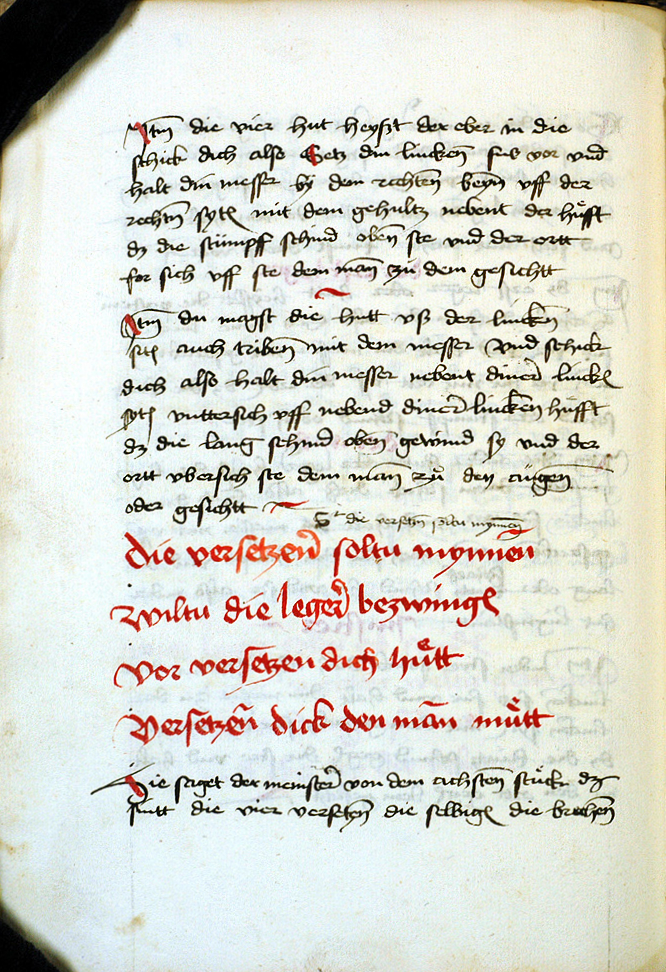 Itm die vier hut heyst der eber in die
schick dich also Setz din lincken fus vor vnd
halt din messer by dem rechten beyn vff der
rechtn sytn mit dem gehultz nebent der hüfft
dz die stümpff schnid oben ste vnd der ortt
for sich vff ste dem man zu dem gesichtt
Itm du magst die hutt vß der lincken
sitn auch triben mit dem messer Vnd schick
dich also halt din messer nebent diner linckn
sytn vnttersich vff nebend diner lincken hüfft
dz die lang schnid oben gewind sy vnd der
ortt vbersich ste dem man zu den augen
oder gesichtt
die versetzn soltu mynnen
die versetzen soltu mynnen
wiltu die leger bezwingn
vor versetzen dich hütt
versetzen dick den man mütt
Hie saget der meinster von dem achsten stück dz
sintt die vier versetzn die selbign die brechen